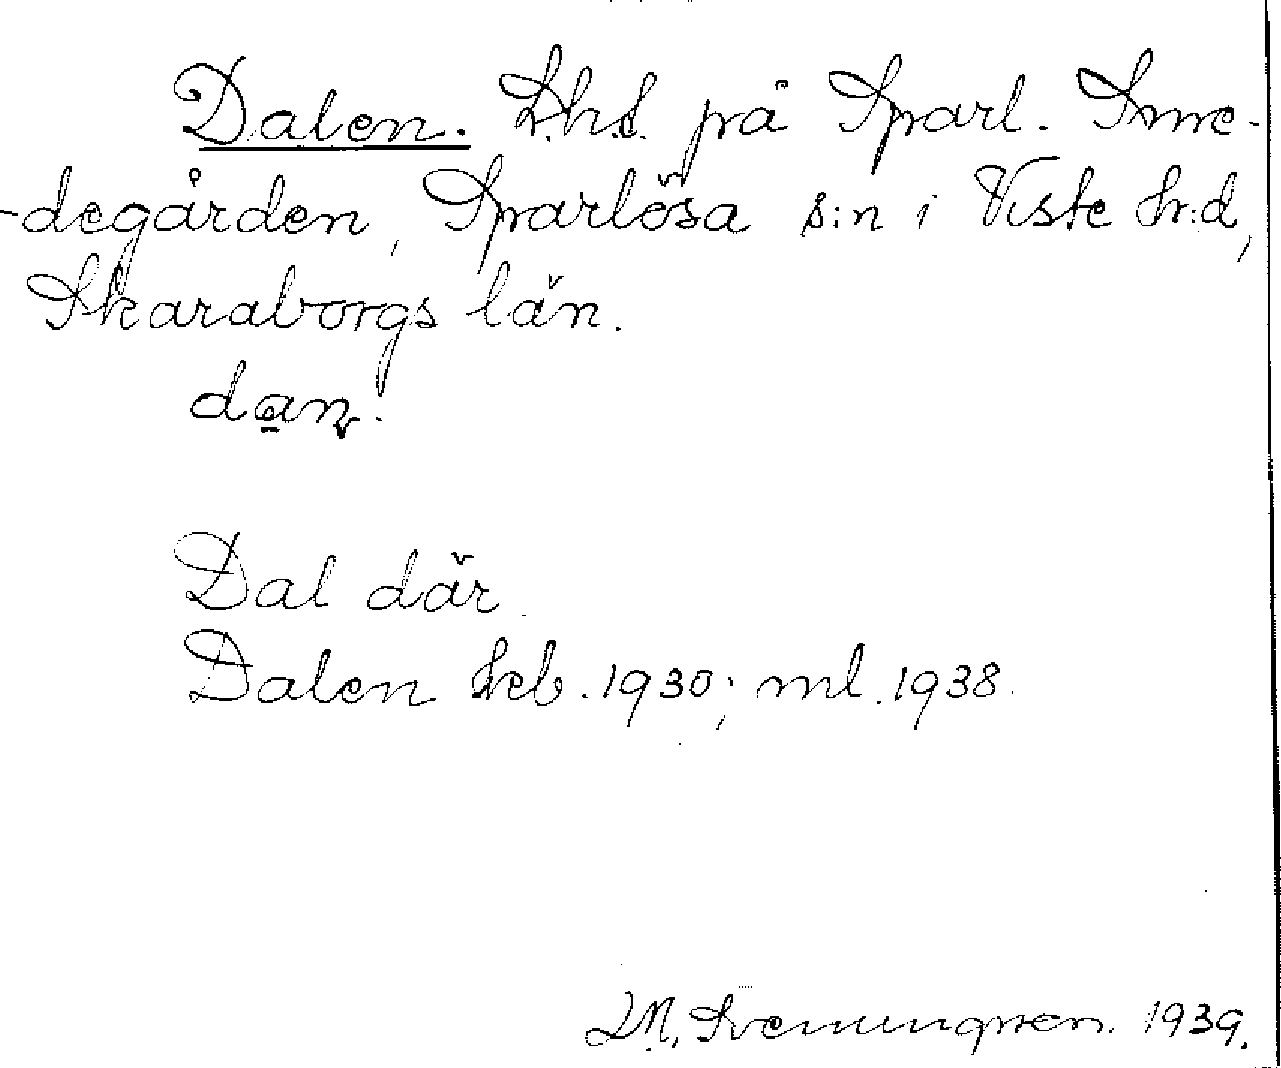 Dalen. Lhd. på Sparl. Sme-
-degården, Sparlösa s:n i Viste hr:d,
Skaraborgs län.
dan.
Dal där.
Dalen heb. 1930; ml. 1938.
J.M. Svenungsson. 1939.